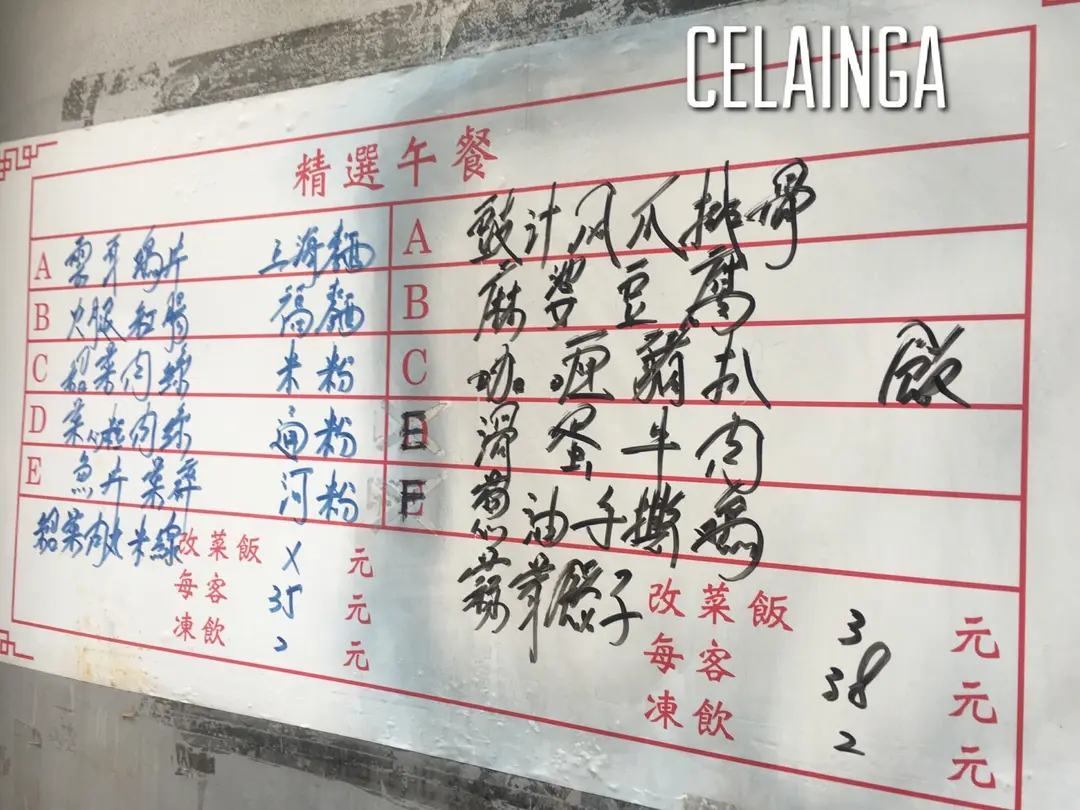 CELAINGA
精選午餐
A 雲耳鷄片 上海麵
B 火腿紅腸 福麵
C 榨菜肉絲 米粉
D 菜心粒肉絲 通粉
E 魚片菜 河粉
菜肉 米線
改菜飯 X 元
每客 35 元
凍飲 2 元
A 豉汁凤爪排骨
B 麻婆豆腐
C 咖喱豬扒 飯
E 滑蛋牛肉
F 葱油手撕鷄
子
改菜飯 3 元
每客 38 元
凍飲 2 元